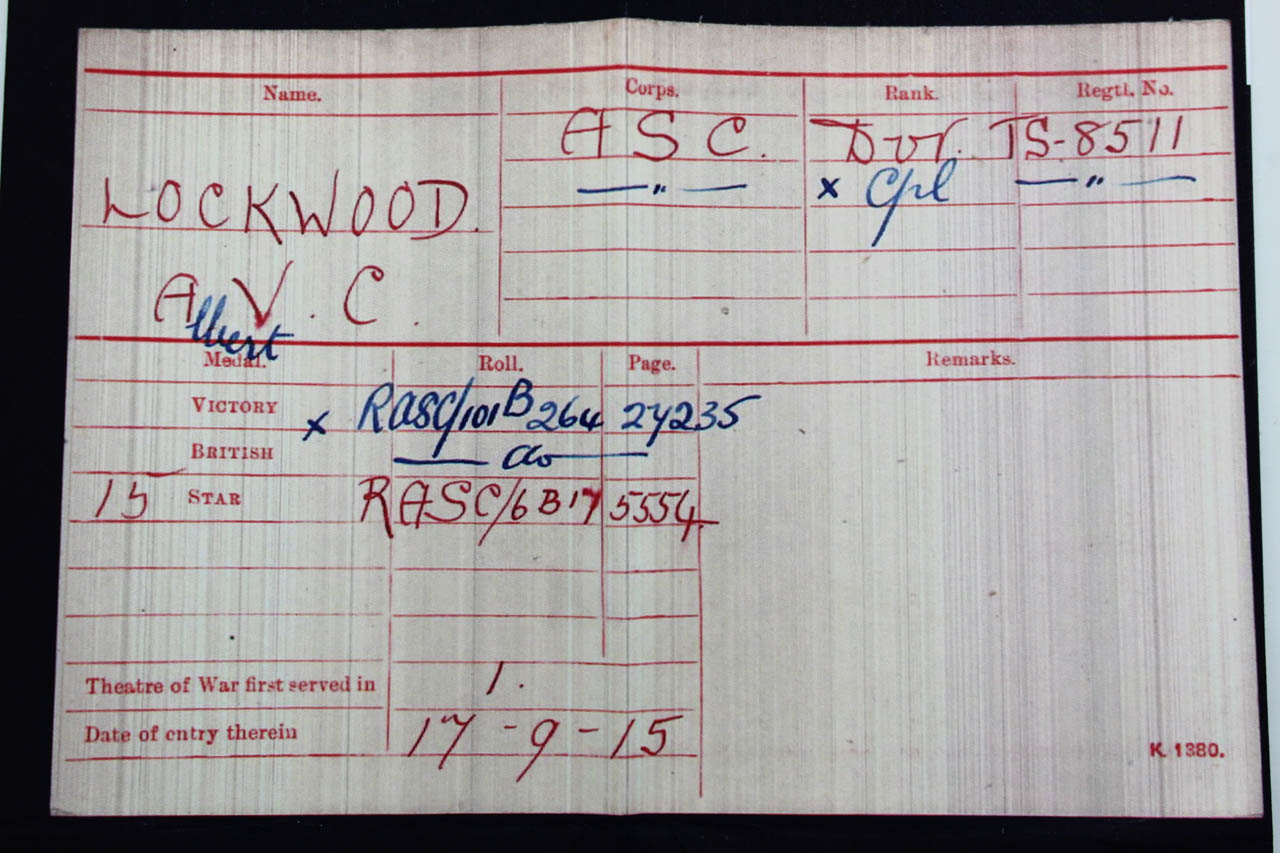 Name. Corps. Rank. Regtl. No.
A S C. Dvr. TS-8511
LOCKWOOD. — " — x Cpl — " —
A V. C.
lbert
Medal. Roll. Page. Remarks.
VICTORY x RASC/101B264 27235
BRITISH — do —
15 STAR RASC/6B17 5554
Theatre of War first served in 1.
Date of entry therein 17-9-15
K. 1380.